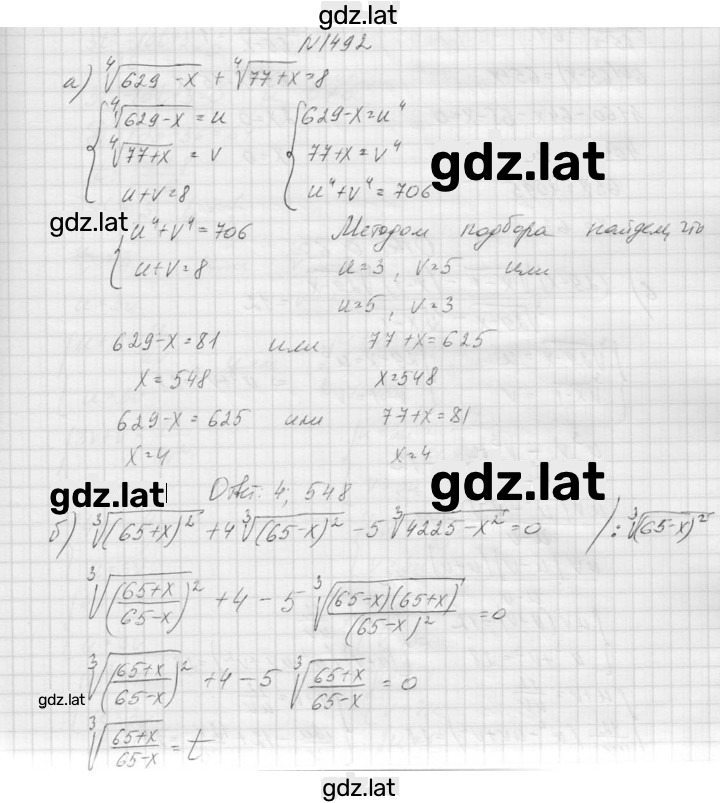 gdz.lat
N1492
а) ⁴√(629-x) + ⁴√(77+x) = 8
{ ⁴√(629-x) = u { 629-x = u⁴
⁴√(77+x) = v 77+x = v⁴ gdz.lat
u+v=8 u⁴+v⁴ = 706
gdz.lat
{ u⁴+v⁴ = 706 Методом подбора найдем, что
u+v=8 u=3, v=5 или
u=5, v=3
629-x=81 или 77+x=625
x=548 x=548
629-x=625 или 77+x=81
x=4 x=4
gdz.lat Ответ: 4; 548 gdz.lat
б) ³√(65+x)² + 4 ³√(65-x)² - 5 ³√(4225-x²) = 0 /: ³√(65-x)²
³√((65+x)/(65-x))² + 4 - 5 ³√((65-x)(65+x)/(65-x)²) = 0
³√((65+x)/(65-x))² + 4 - 5 ³√((65+x)/(65-x)) = 0
gdz.lat gdz.lat
³√((65+x)/(65-x)) = t
gdz.lat